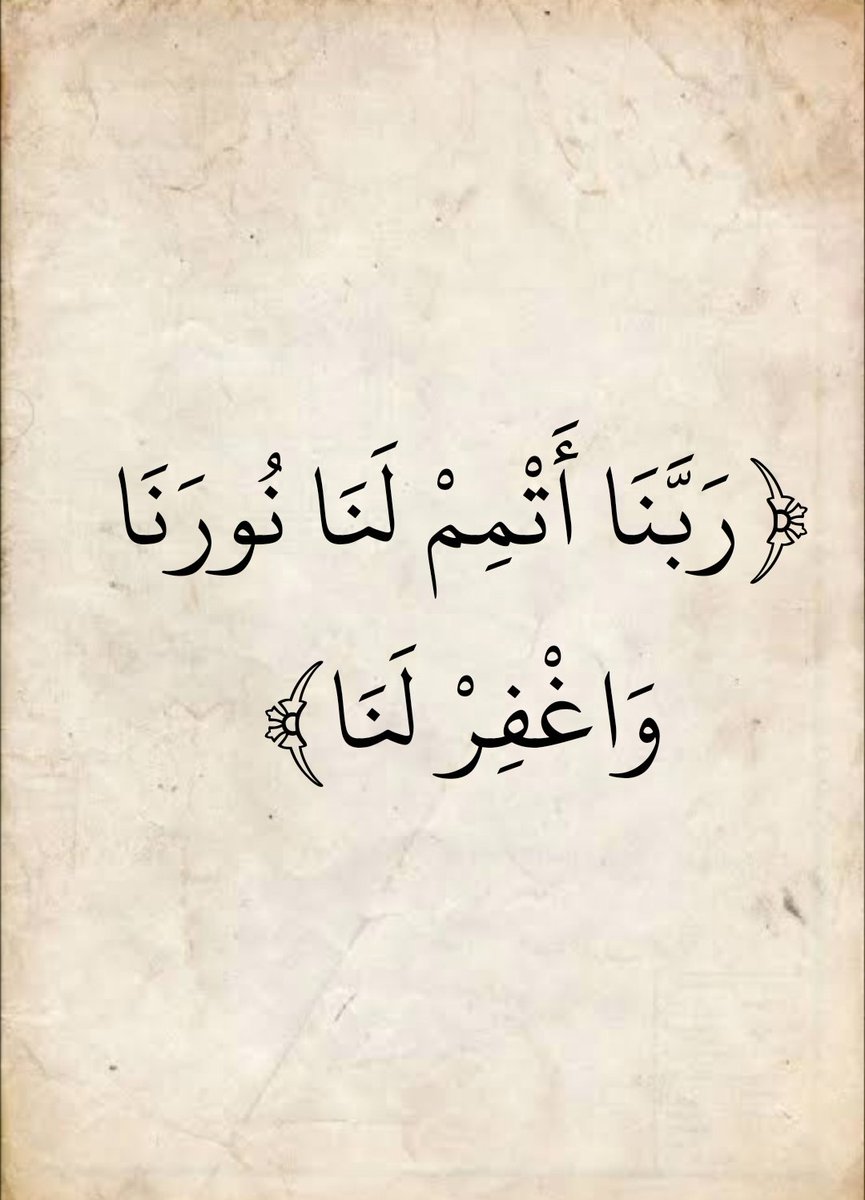 ﴿رَبَّنَا أَتْمِمْ لَنَا نُورَنَا
وَاغْفِرْ لَنَا﴾